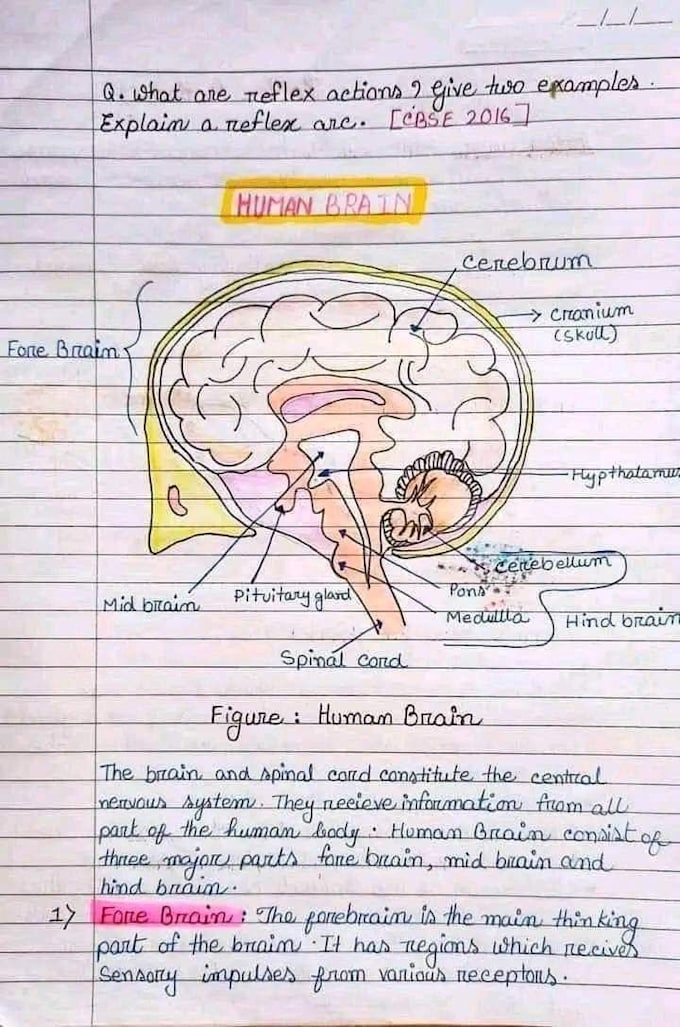 _/_/_
Q. What are reflex actions ? Give two examples.
Explain a reflex arc. [CBSE 2016]
HUMAN BRAIN
Cerebrum
Cranium
(Skull)
Fore Brain
Hypthalamus
Cerebellum
Pons
Medullla
Hind brain
Mid brain
Pituitary gland
Spinal cord
Figure : Human Brain
The brain and spinal cord constitute the central
nervous system. They recieve information from all
part of the human body. Human Brain consist of
three major parts fore brain, mid brain and
hind brain.
1) Fore Brain : The forebrain is the main thinking
part of the brain. It has regions which recives
Sensory impulses from various receptors.